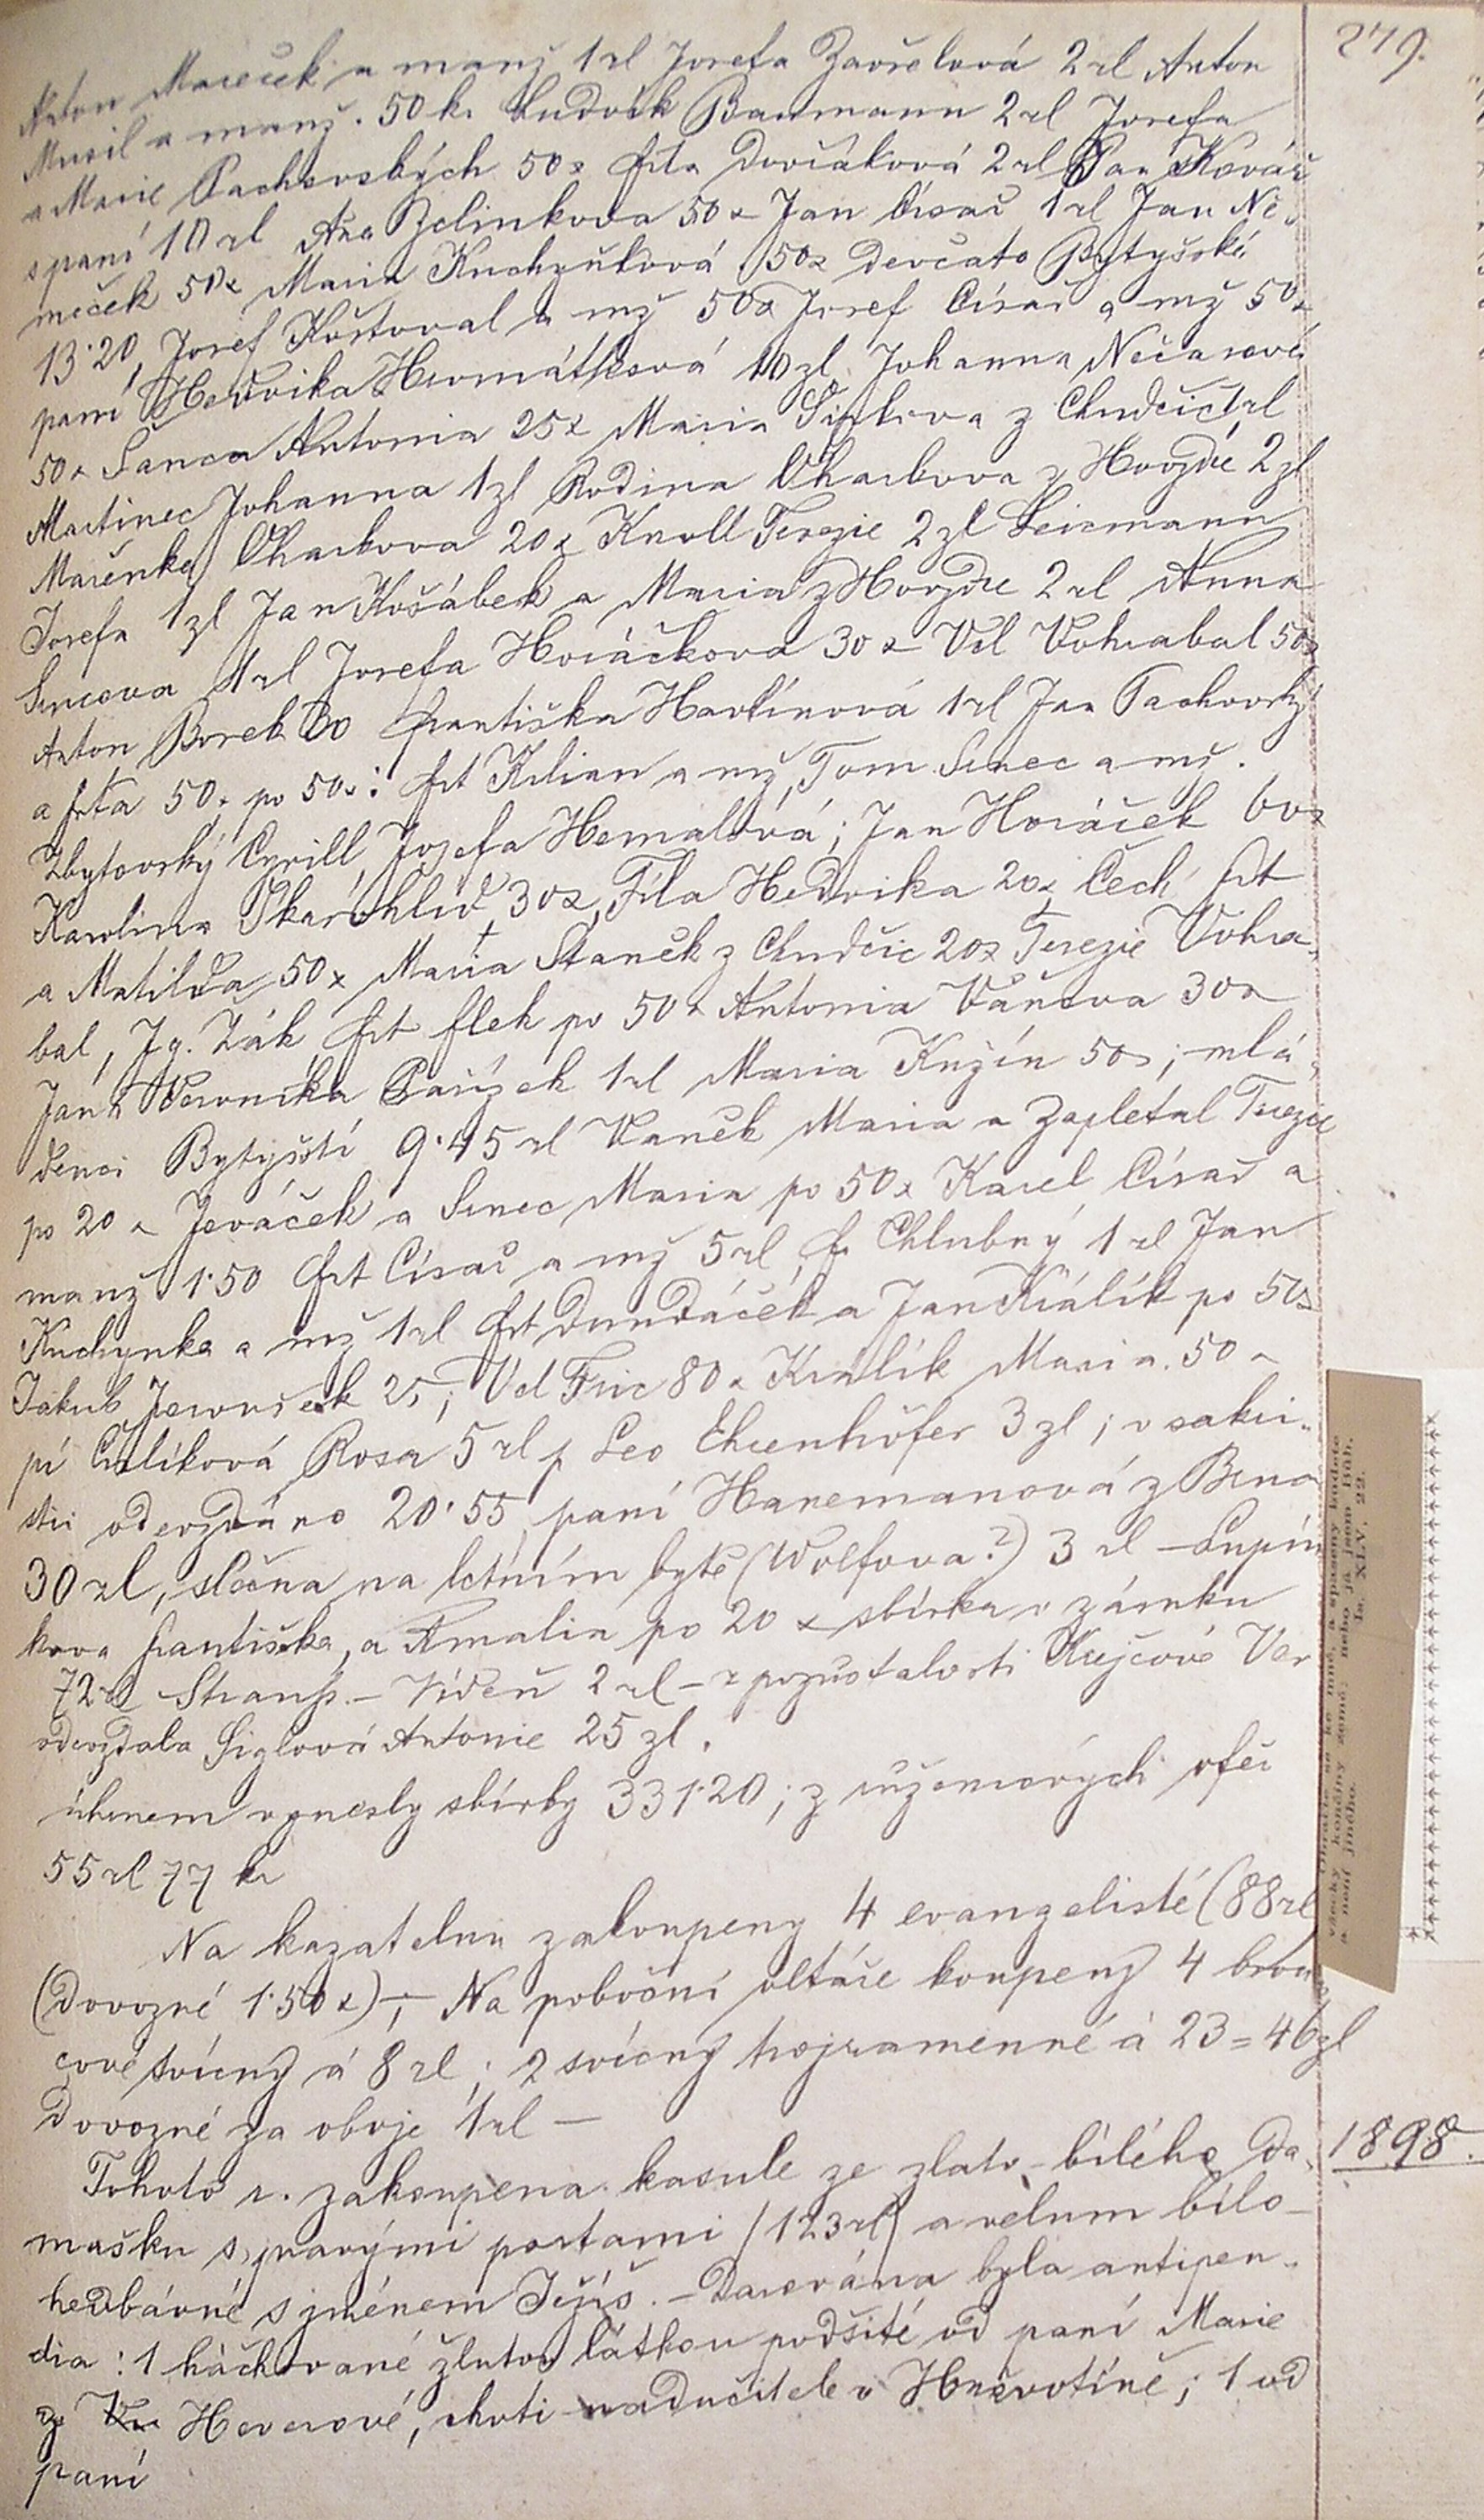 279.
Anton Mareček a manž 1 zl Josefa Zavřelová 2 zl Anton
Musil a manž. 50 kr Ludvík Baumann 2 zl Josefa
a Marie Pachovských 50 x frta Dvořáková 2 zl Pan Kovář
s paní 10 zl Ana Belinkova 50 x Jan Císař 1 zl Jan Ně-
meček 50 x Maria Kuchyňková 50 x děvčata Bytyšské
13·20, Josef Koštoval a mž 50 x Josef Císař a mž 50 x
paní Hedvika Hromátková 10 zl. Johanna Nečasová
50 x Šanca Antonia 25 x Maria z Chudčic 1 zl
Martinec Johanna 1 zl Rodina Uharkova z Hvozdce 2 zl
Mařenka Uharkova 20 x Knoll Terezie 2 zl Leismann
Josefa 1 zl Jan Košábek a Maria z Hvozdce 2 zl Anna
Srncova 1 zl Josefa Horáčkova 30 x Vil Vohrabal 50 x
Anton Borek Františka Havlínová 1 zl Jan Pachovský
a frta 50 x po 50 x: frt Kilian a mž, Tom Srnec a mž.
Zbytovský Cyrill, Josefa Hemalová; Jan Horáček 60 x
Karolina 30 x, Fila Hedvika 20 x Čech frt
a Matilda 50 x Maria Staněk z Chudčic 20 x Terezie Vohra-
bal, Ig. Žák frt flek po 50 x Antonia Váňova 30 x
Jan a Veronika Pařízek 1 zl Maria Knížín 50 x; mlá-
denci Bytyšští 9·45 zl Vaněk Maria a Zapletal Terezie
po 20 x Jeváček a Srnec Maria po 50 x Karel Císař a
manž 1·50 frt Císař a mž 5 zl, fr Chlubný 1 zl Jan
Kuchynka a mž 1 zl frt Dundáček a Jan Králík po 50 x
Jakub 25; Vil Fric 80 x Králík Maria. 50 x
pí Rosa 5 zl p Leo Ehrenhöfer 3 zl; v sakri-
stii odevzdáno 20·55, paní Hanemanová z Brna
30 zl, slečna na letním bytě (Wolfova?) 3 zl – Lupín
kova Františka, a Amalia po 20 x sbírka v zámku
72 zl – Vídeň 2 zl – z pozůstalosti Krejčové Ver
odevzdala Siglová Antonie 25 zl.
úhrnem vynesly sbírky 331·20; z růžencových ofěr
55 zl 77 kr
Na kazatelnu zakoupeny 4 evangelisté (88 zl
(dovozné 1·50 x) –, – Na poboční oltáře koupeny 4 bron-
cové svícny á 8 zl; 2 svícny trojramenné á 23 = 46 zl
Dovozné za oboje 1 zl –
1898.
Tohoto r. zakoupena kasule ze zlato-bílého da-
mašku s pravými portami (123 zl) a velum bílo-
hedbávné s jménem Ježíš. – Darována byla antipen-
dia: 1 háčkované žlutou látkou podšité od paní Marie
z Heverové, choti nadučitele v Hněvotíně; 1 od
paní
všecky končiny země; nebo já jsem Bůh.
a není jiného. Is. XLV. 22.